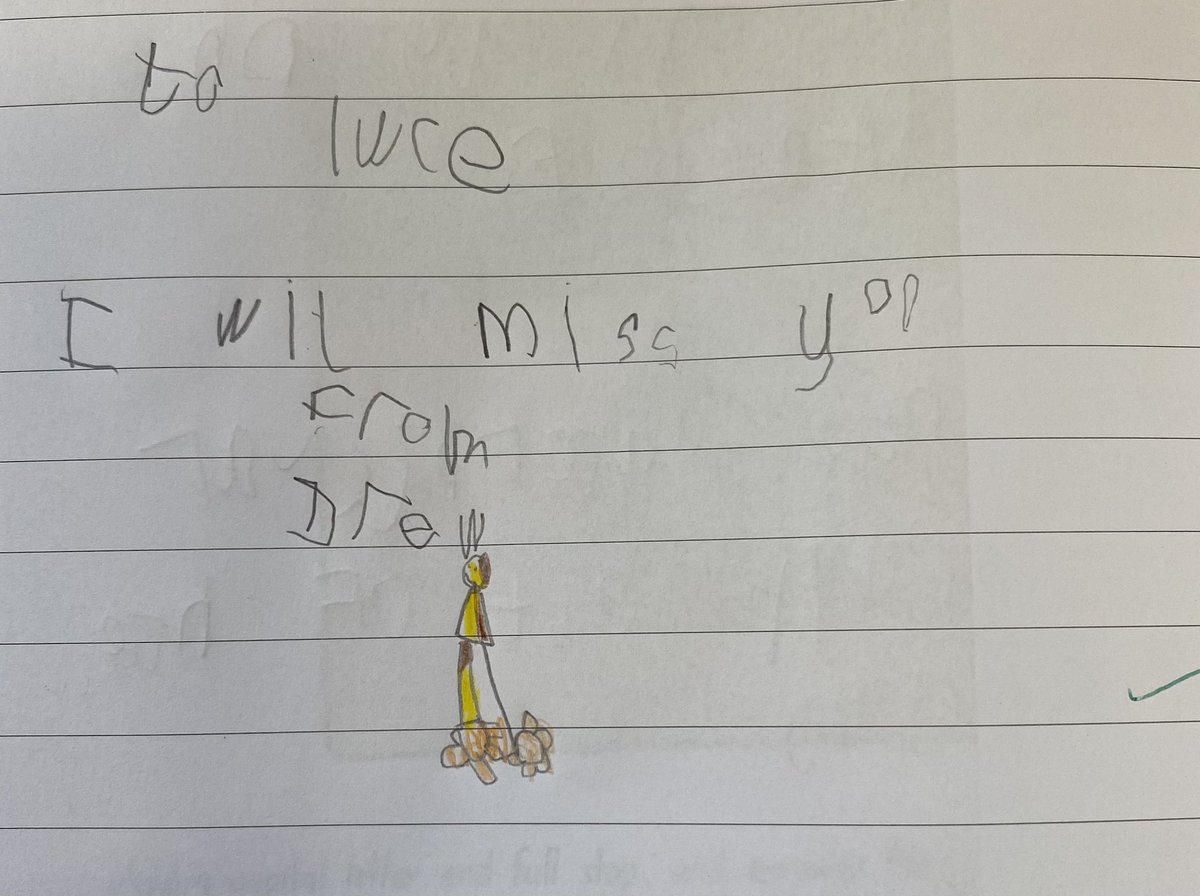 to
lwce
I wil miss you
From
Drew